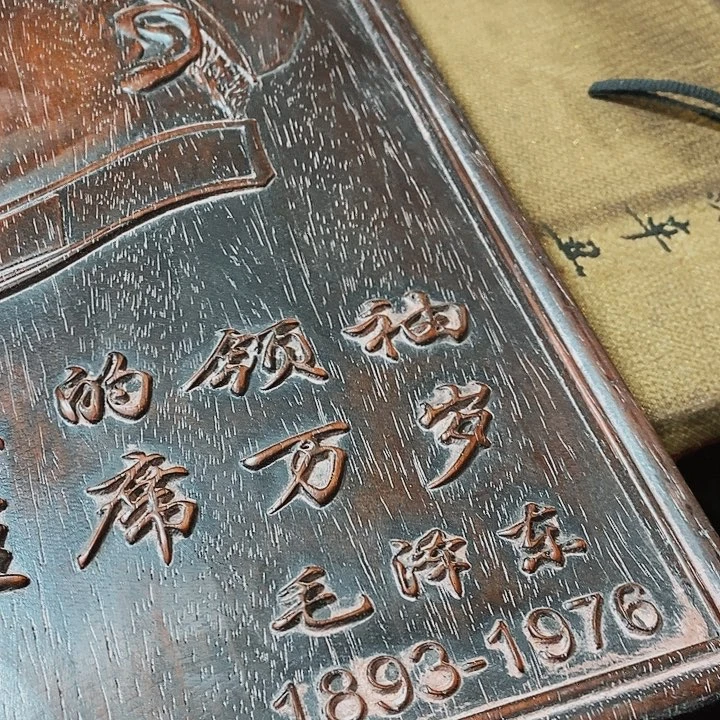 的领袖
席万岁
毛泽东
1893-1976